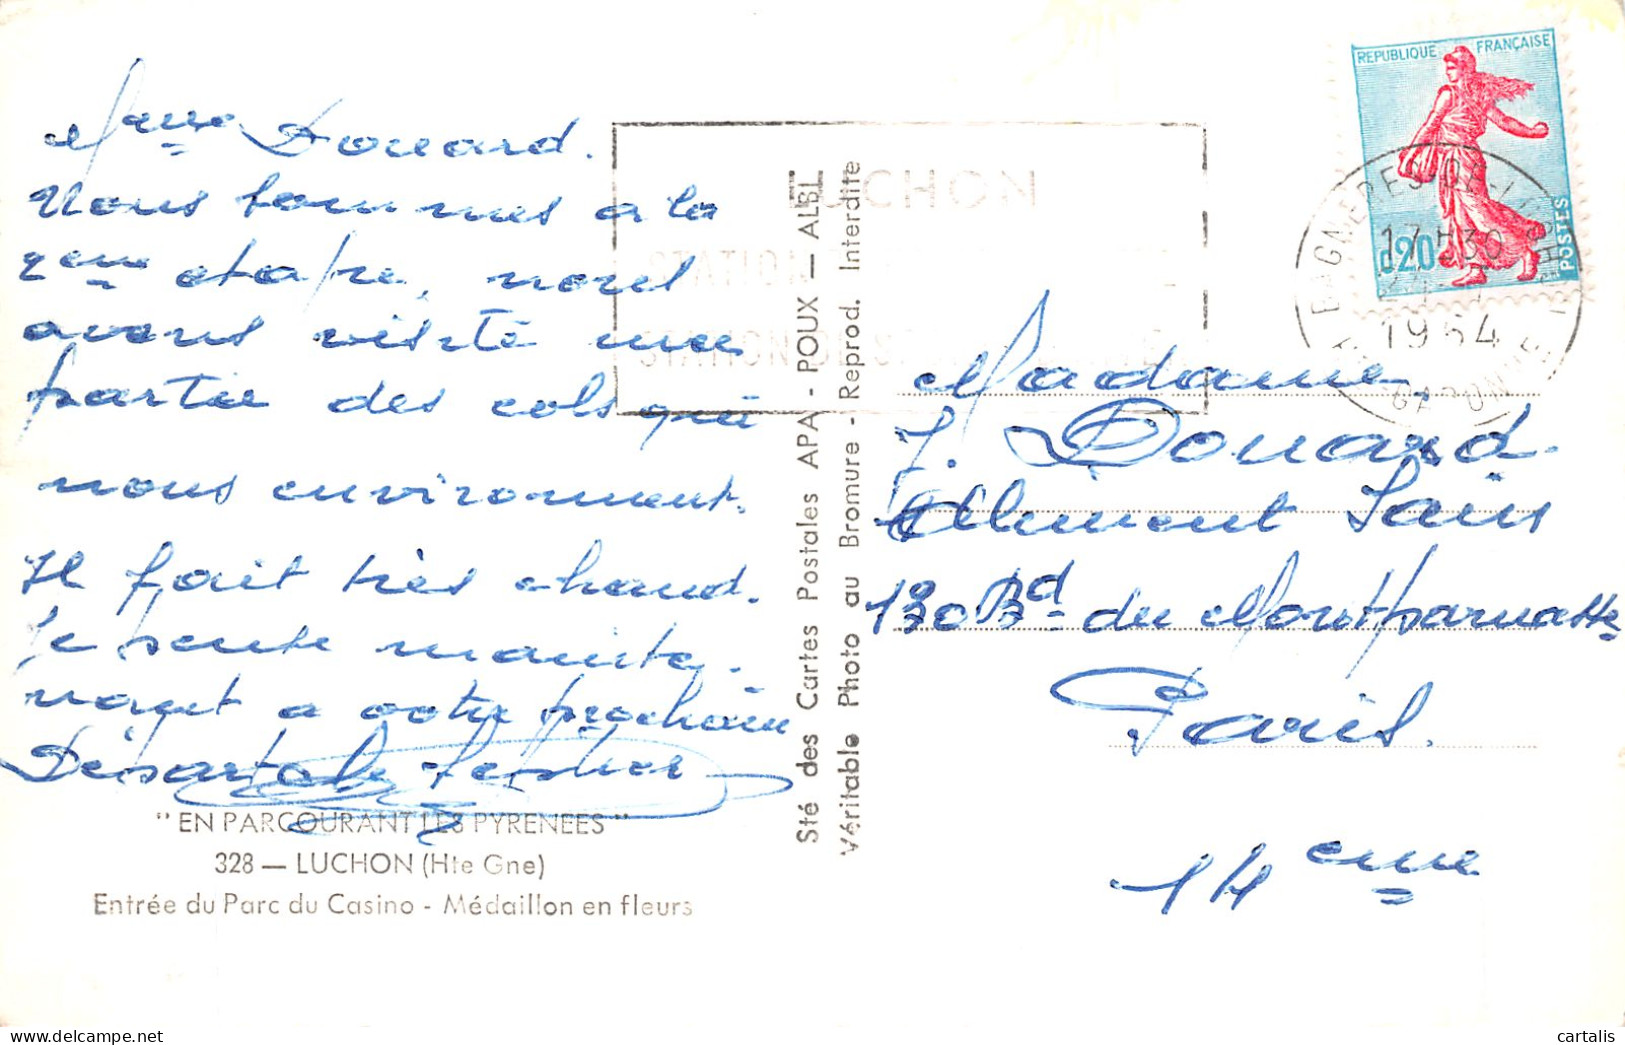 Mme Douard.
Nous sommes a la
2eme etape, nous
avons visité une
partie des cols qui
nous environnent.
Il fait très chaud.
Je pense mainte-
nant a votre prochain
Départ
"EN PARCOURANT LES PYRENEES"
328 — LUCHON (Hte Gne)
Entrée du Parc du Casino - Médaillon en fleurs
Sté des Cartes Postales APA - POUX — ALBI
Véritable Photo au Bromure - Reprod. Interdite
LUCHON
STATION
STATION
REPUBLIQUE FRANÇAISE
0,20
POSTES
BAGNERES DE LUCHON
17H30
1964
Hte GARONNE
Madame
J. Douard
Aliment Sain
130 Bd du Montparnasse
Paris.
14eme
cartalis